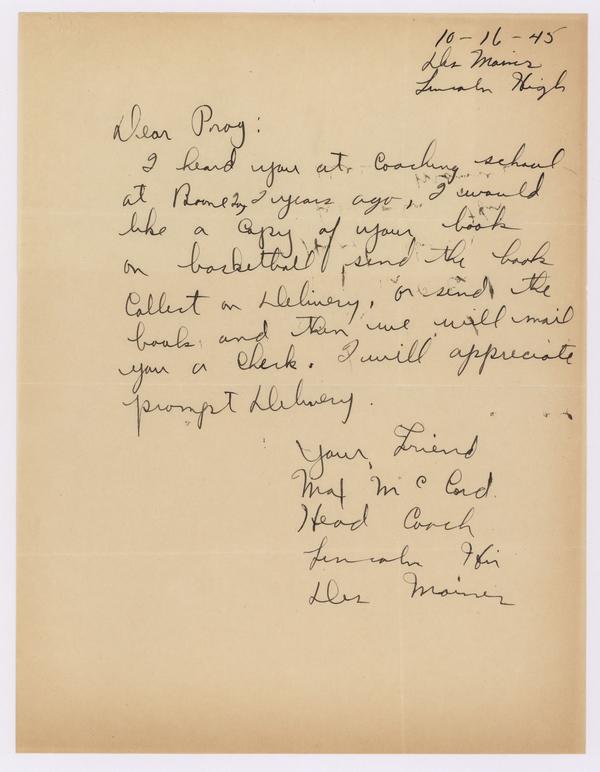 10-16-45
Des Moines
Lincoln High
Dear Prog:
I heard you at Coaching school
at Boone 2 years ago, I would
like a copy of your book
on basketball, send the book
Collect on Delivery, or send the
book and then we will mail
you a check. I will appreciate
prompt Delivery.
Your Friend
Max McCord.
Head Coach
Lincoln Hi
Des Moines